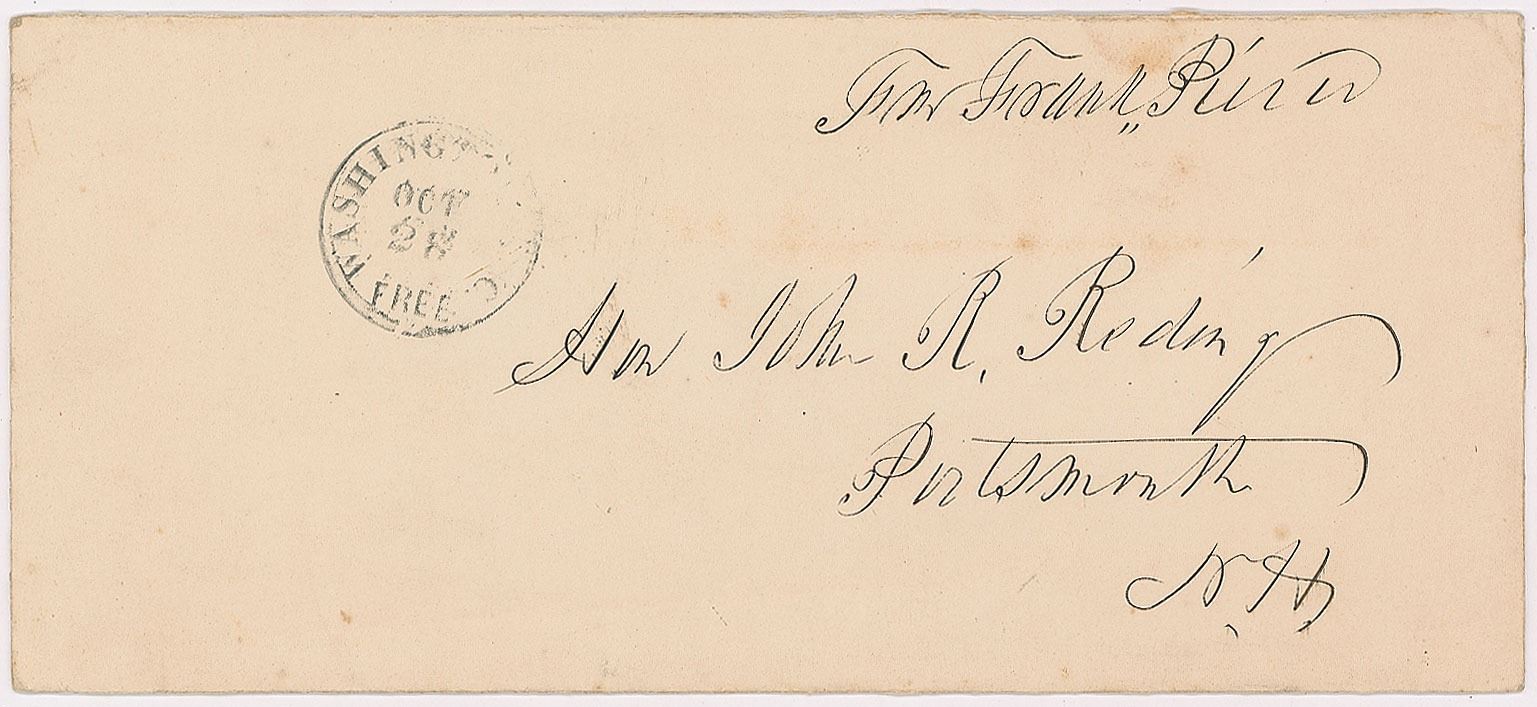 Frank,, Pierce
WASHINGT
OCT
28
FREE
Hon John R. Reding
Portsmouth
N.H,